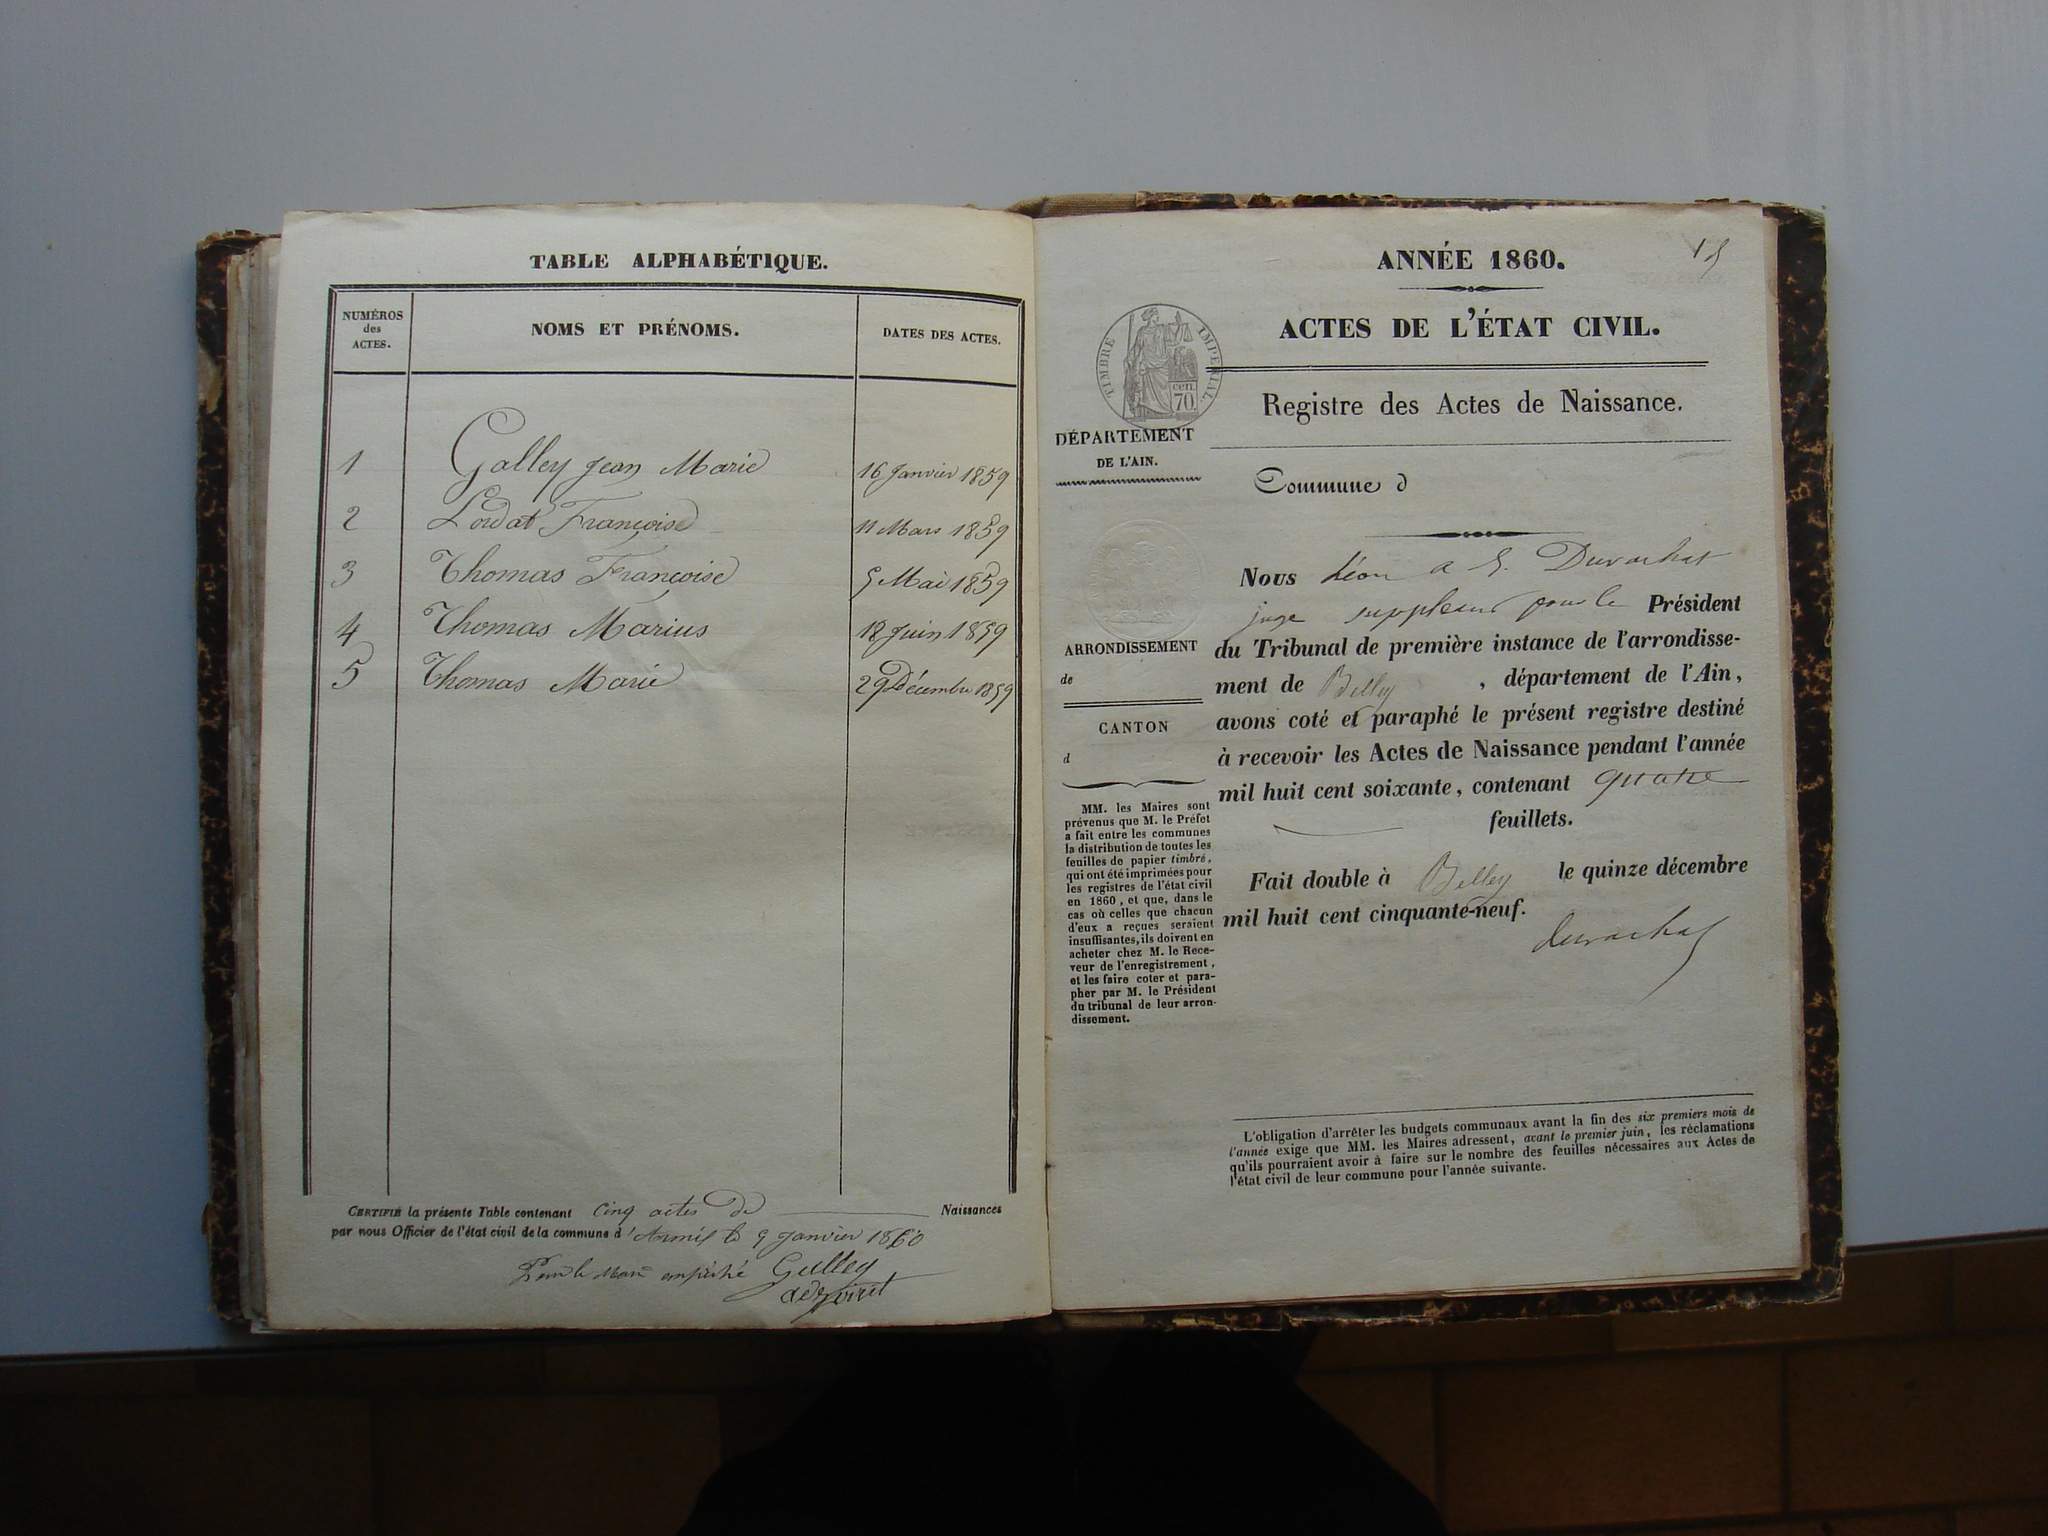 TABLE ALPHABÉTIQUE.
NUMÉROS
des
ACTES.
NOMS ET PRÉNOMS.
DATES DES ACTES.
1 Galley Jean Marie 16 Janvier 1859
2 Lordat Françoise 11 Mars 1859
3 Thomas Françoise 5 Mai 1859
4 Thomas Marius 18 Juin 1859
5 Thomas Marie 29 Décembre 1859
CERTIFIÉ la présente Table contenant Cinq actes de Naissances
par nous Officier de l'état civil de la commune d' le 9 Janvier 1860
Pour le Maire empêché Gulley
ANNÉE 1860.
ACTES DE L'ÉTAT CIVIL.
TIMBRE IMPÉRIAL
cen.
70.
Registre des Actes de Naissance.
DÉPARTEMENT
DE L'AIN.
Commune d
ARRONDISSEMENT
de
CANTON
d
MM. les Maires sont
prévenus que M. le Préfet
a fait entre les communes
la distribution de toutes les
feuilles de papier timbré,
qui ont été imprimées pour
les registres de l'état civil
en 1860, et que, dans le
cas où celles que chacun
d'eux a reçues seraient
insuffisantes, ils doivent en
acheter chez M. le Rece-
veur de l'enregistrement,
et les faire coter et para-
pher par M. le Président
du tribunal de leur arron-
dissement.
Nous Léon a Duvachat
juge suppléant pour le Président
du Tribunal de première instance de l'arrondisse-
ment de Belley , département de l'Ain,
avons coté et paraphé le présent registre destiné
à recevoir les Actes de Naissance pendant l'année
mil huit cent soixante, contenant quatre
feuillets.
Fait double à Belley le quinze décembre
mil huit cent cinquante-neuf.
duvachat
L'obligation d'arrêter les budgets communaux avant la fin des six premiers mois de
l'année exige que MM. les Maires adressent, avant le premier juin, les réclamations
qu'ils pourraient avoir à faire sur le nombre des feuilles nécessaires aux Actes de
l'état civil de leur commune pour l'année suivante.